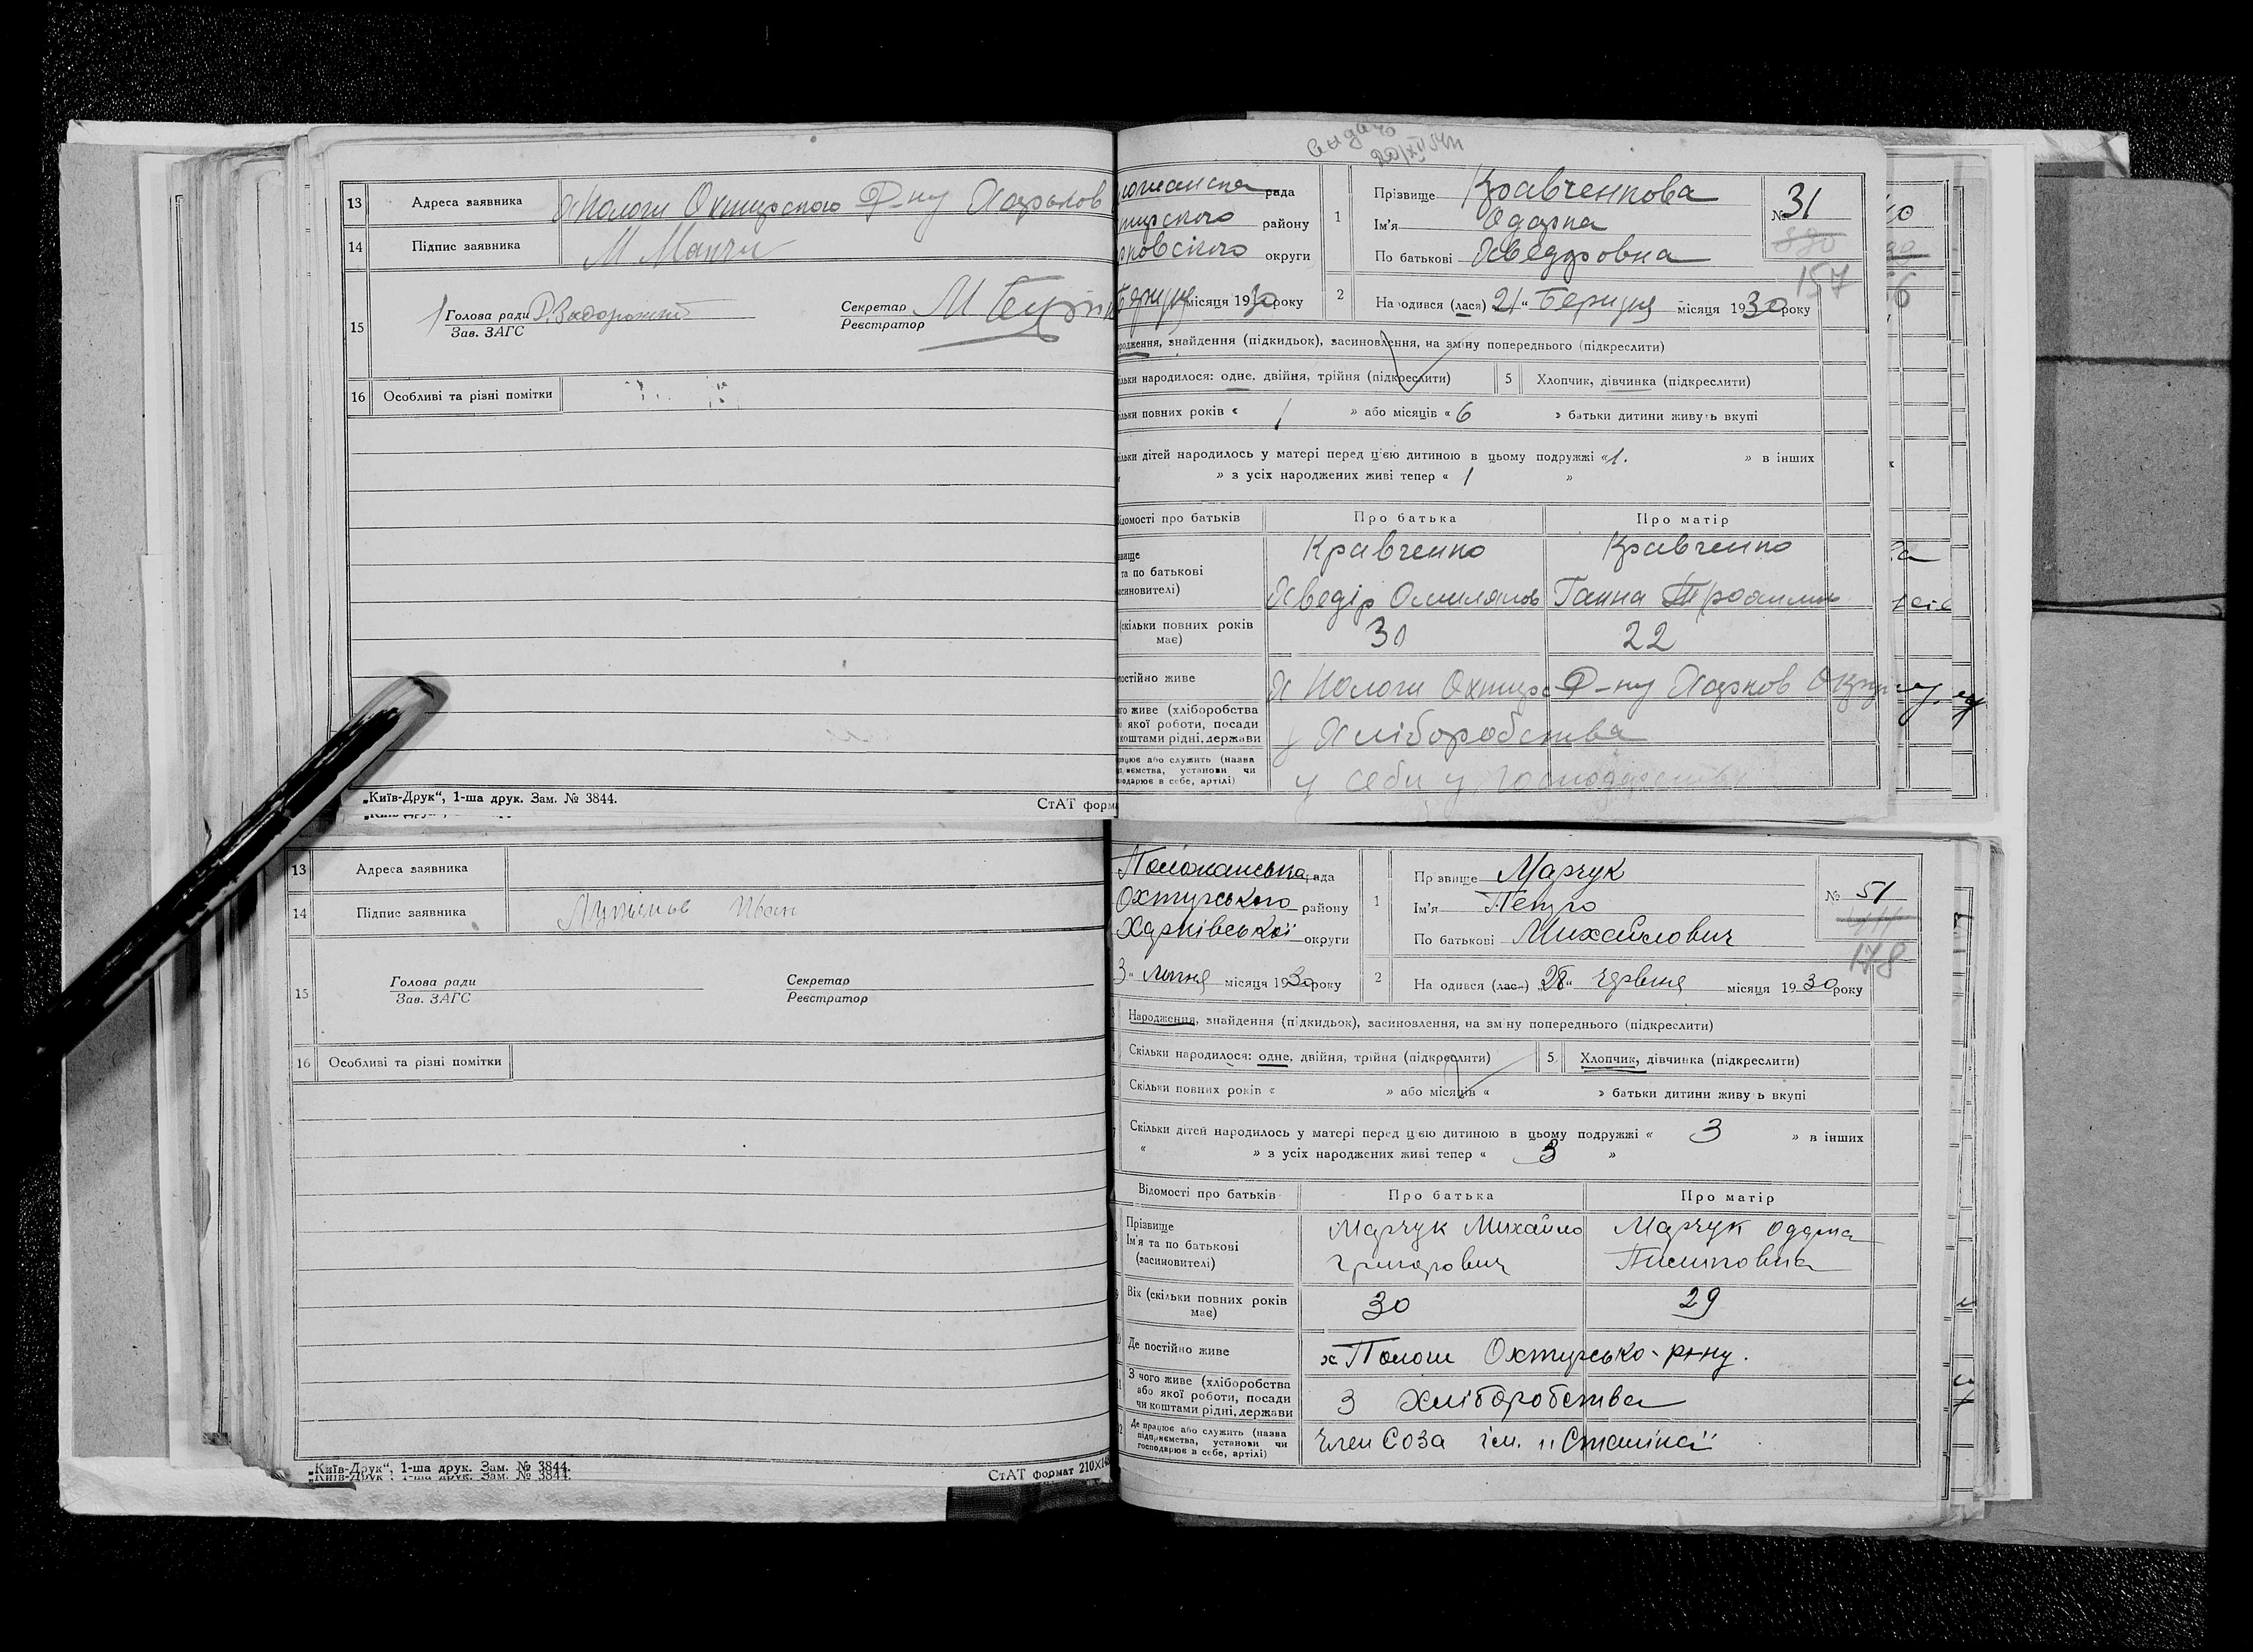 13 Адреса заявника х Пологи Охтирского Р-ну Харьков
14 Підпис заявника М
15 Голова ради Зав. ЗАГС Р. Задорожній Секретар Реєстратор М
16 Особливі та різні помітки
„Київ-Друк“, 1-ша друк. Зам. № 3844. СтАТ форма
рада
тирского району
рковсікого округи
місяця 1930 року
1 Прізвище Кравченкова
Ім'я Одарка
По батькові Хведоровна
№ 31
157
2 Народився (лася) „21“ Березня місяця 1930 року
родження, знайдення (підкидьок), засиновлення, на зміну попереднього (підкреслити)
ільки народилося: одне, двійня, трійня (підкреслити) 5 Хлопчик, дівчинка (підкреслити)
ільки повних років « 1 » або місяців « 6 » батьки дитини живуть вкупі
ільки дітей народилось у матері перед цією дитиною в цьому подружжі «1. » в інших
» з усіх народжених живі тепер « 1 »
ідомості про батьків Про батька Про матір
звище Кравченко Кравченко
та по батькові
асиновителі) Хведір Омелянов Ганна
(скільки повних років має) 30 22
постійно живе х Пологи Охтирс Р-ну Харков Округу
ого живе (хліборобства
якої роботи, посади
коштами рідні, держави з Хліборобства
рацює або служить (назва
підприємства, установи чи
господарює в себе, артілі) у себи у господарстві
13 Адреса заявника
14 Підпис заявника Іван
15 Голова ради Зав. ЗАГС Секретар Реєстратор
16 Особливі та різні помітки
„Київ-Друк“, 1-ша друк. Зам. № 3844.
СтАТ формат 210×1
Положанська рада
Охтирського району
Харківської округи
3“ липня місяця 1930 року
1 Прізвище Марчук
Ім'я Петро
По батькові Михайлович
№ 51
178
2 Народився (лася) „28“ червня місяця 1930 року
Народження, знайдення (підкидьок), засиновлення, на зміну попереднього (підкреслити)
Скільки народилося: одне, двійня, трійня (підкреслити) 5 Хлопчик, дівчинка (підкреслити)
Скільки повних років « » або місяців « » батьки дитини живуть вкупі
Скільки дітей народилось у матері перед цією дитиною в цьому подружжі « 3 » в інших
« » з усіх народжених живі тепер « 3 »
Відомості про батьків Про батька Про матір
Прізвище Марчук Михайло Марчук Одарка
Ім'я та по батькові
(засиновителі) Григорович Пилиповна
Вік (скільки повних років має) 30 29
Де постійно живе х Пологи Охтирсько-р-ну.
З чого живе (хліборобства
або якої роботи, посади
чи коштами рідні, держави З Хліборобства
Де працює або служить (назва
підприємства, установи чи
господарює в себе, артілі) Член СОЗа ім. „Сталіна“